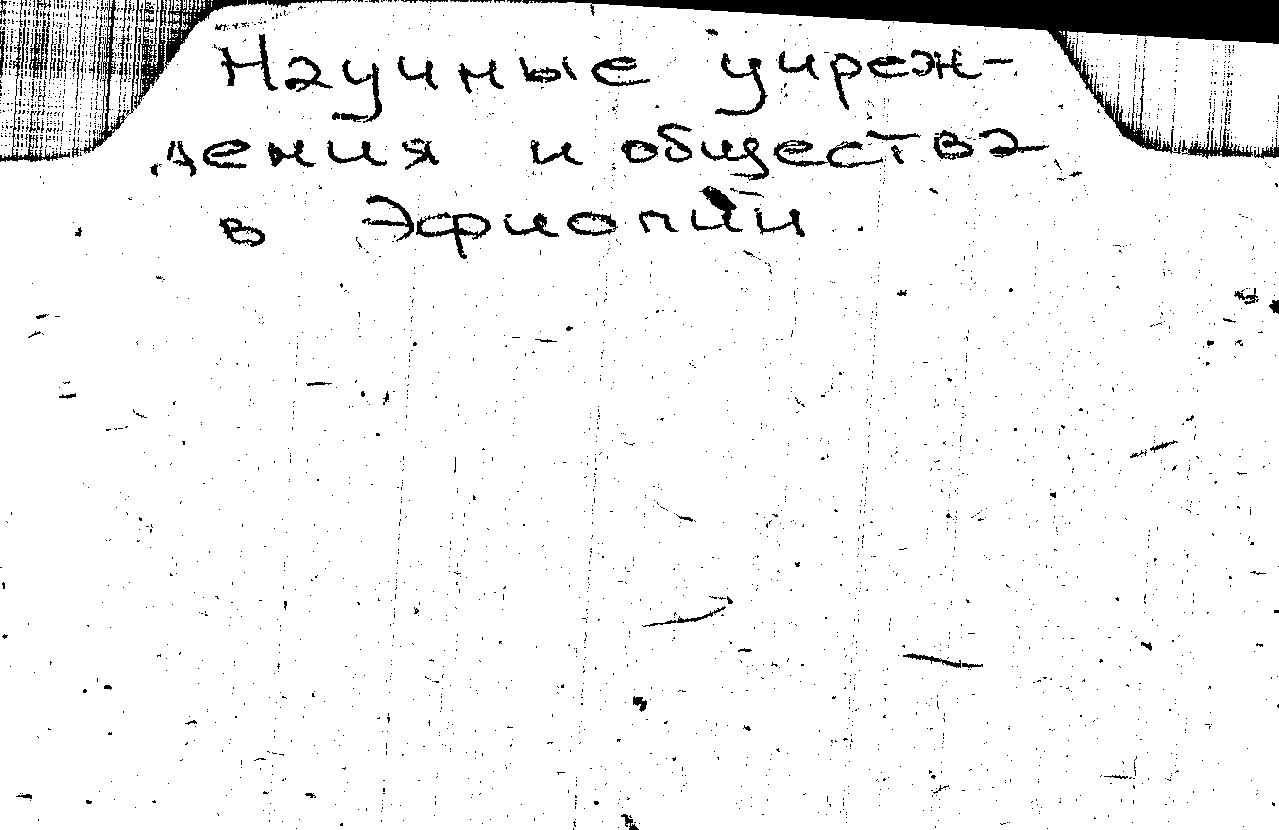 Научные учреж-
дения и общества
в Эфиопии